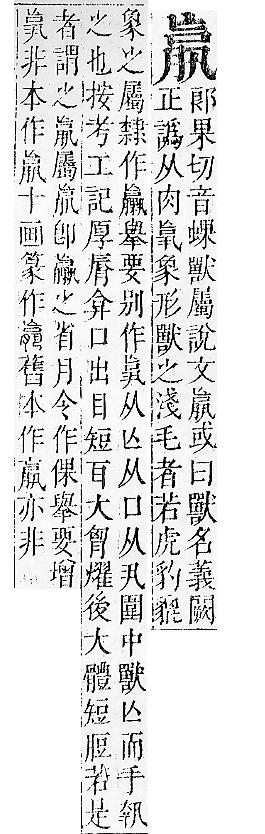 𣎆
郎果切音螺獸屬說文𣎆或曰獸名義闕
正譌从肉象形獸之淺毛者若虎豹貔
象之屬隸作舉要別作从亾从口从丮圍中獸亾而手執
之也按考工記厚脣弇口出目短耳大胷燿後大體短脰若是
者謂之𣎆屬𣎆卽之省月令作倮舉要增
非本作𣎆十画篆作舊本作亦非